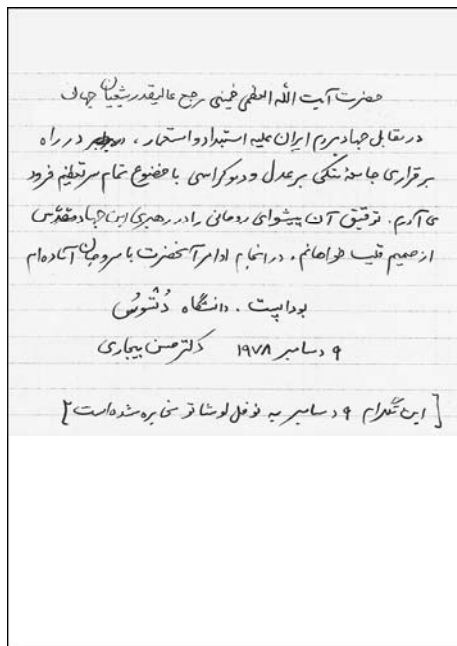 حضرت آیت الله العظمی خمینی مرجع عالیقدر شیعیان جهان
در مقابل جهاد مردم ایران علیه استبداد و استعمار ، در راه
برقراری جامعهٔ متکی بر عدل و دموکراسی با خضوع تمام سر تعظیم فرود
می آورم. توفیق آن پیشوای روحانی را در رهبری این جهاد مقدس
از صمیم قلب خواهانم. در انجام اوامر آنحضرت با سر و جان آماده ام
بوداپست . دانشگاه
۹ دسامبر ۱۹۷۸ دکتر حسن بیجاری
[ این تلگرام ۹ دسامبر به نوفل لوشاتو مخابره شده است ]